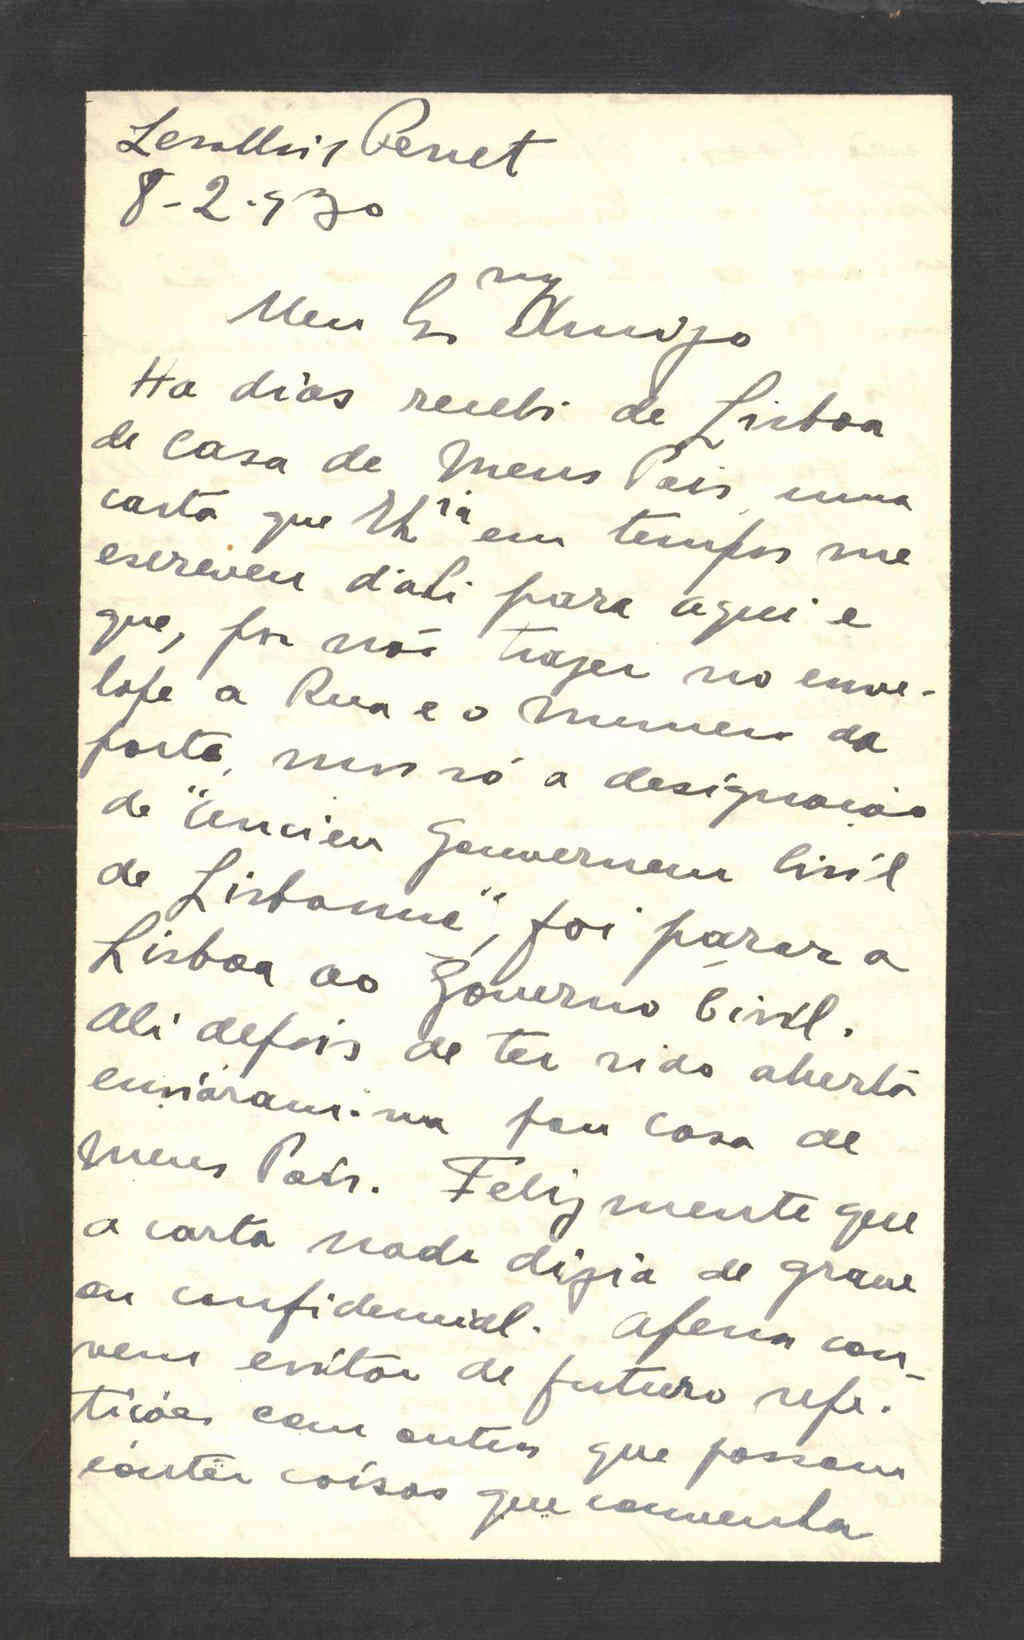 Levallois Perret
8-2-930
Meu Exmo Amigo
Ha dias recebi de Lisboa
de casa de Meus Pais, uma
carta que em tempos me
escreveu d'ali para aqui e
que, por não trazer no enve-
lope a Rua e o numero da
porta, mas só a designação
de "Ancien Gouverneur Civil
de Lisbonne", foi parar a
Lisboa ao Governo Civil.
Ali depois de ter sido aberta
enviaram-na para casa de
Meus Pais. Felizmente que
a carta nada dizia de grave
ou confidencial. Apenas con-
vem evitar de futuro repe-
tições com outras que possam
conter coisas que convenha